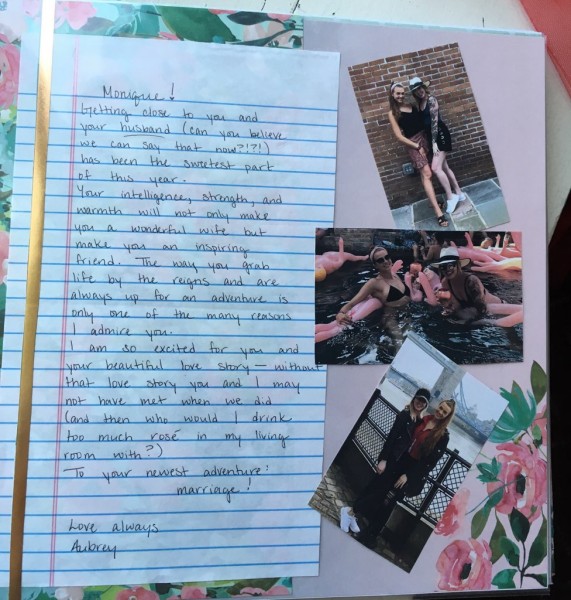 Monique!
Getting close to you and
your husband (can you believe
we can say that now?!?!)
has been the sweetest part
of this year.
Your intelligence, strength, and
warmth will not only make
you a wonderful wife but
make you an inspiring
friend. The way you grab
life by the reigns and are
always up for an adventure is
only one of the many reasons
I admire you.
I am so excited for you and
your beautiful love story — without
that love story you and I may
not have met when we did
(and then who would I drink
too much rosé in my living
room with?)
To your newest adventure:
marriage!
Love always
Aubrey